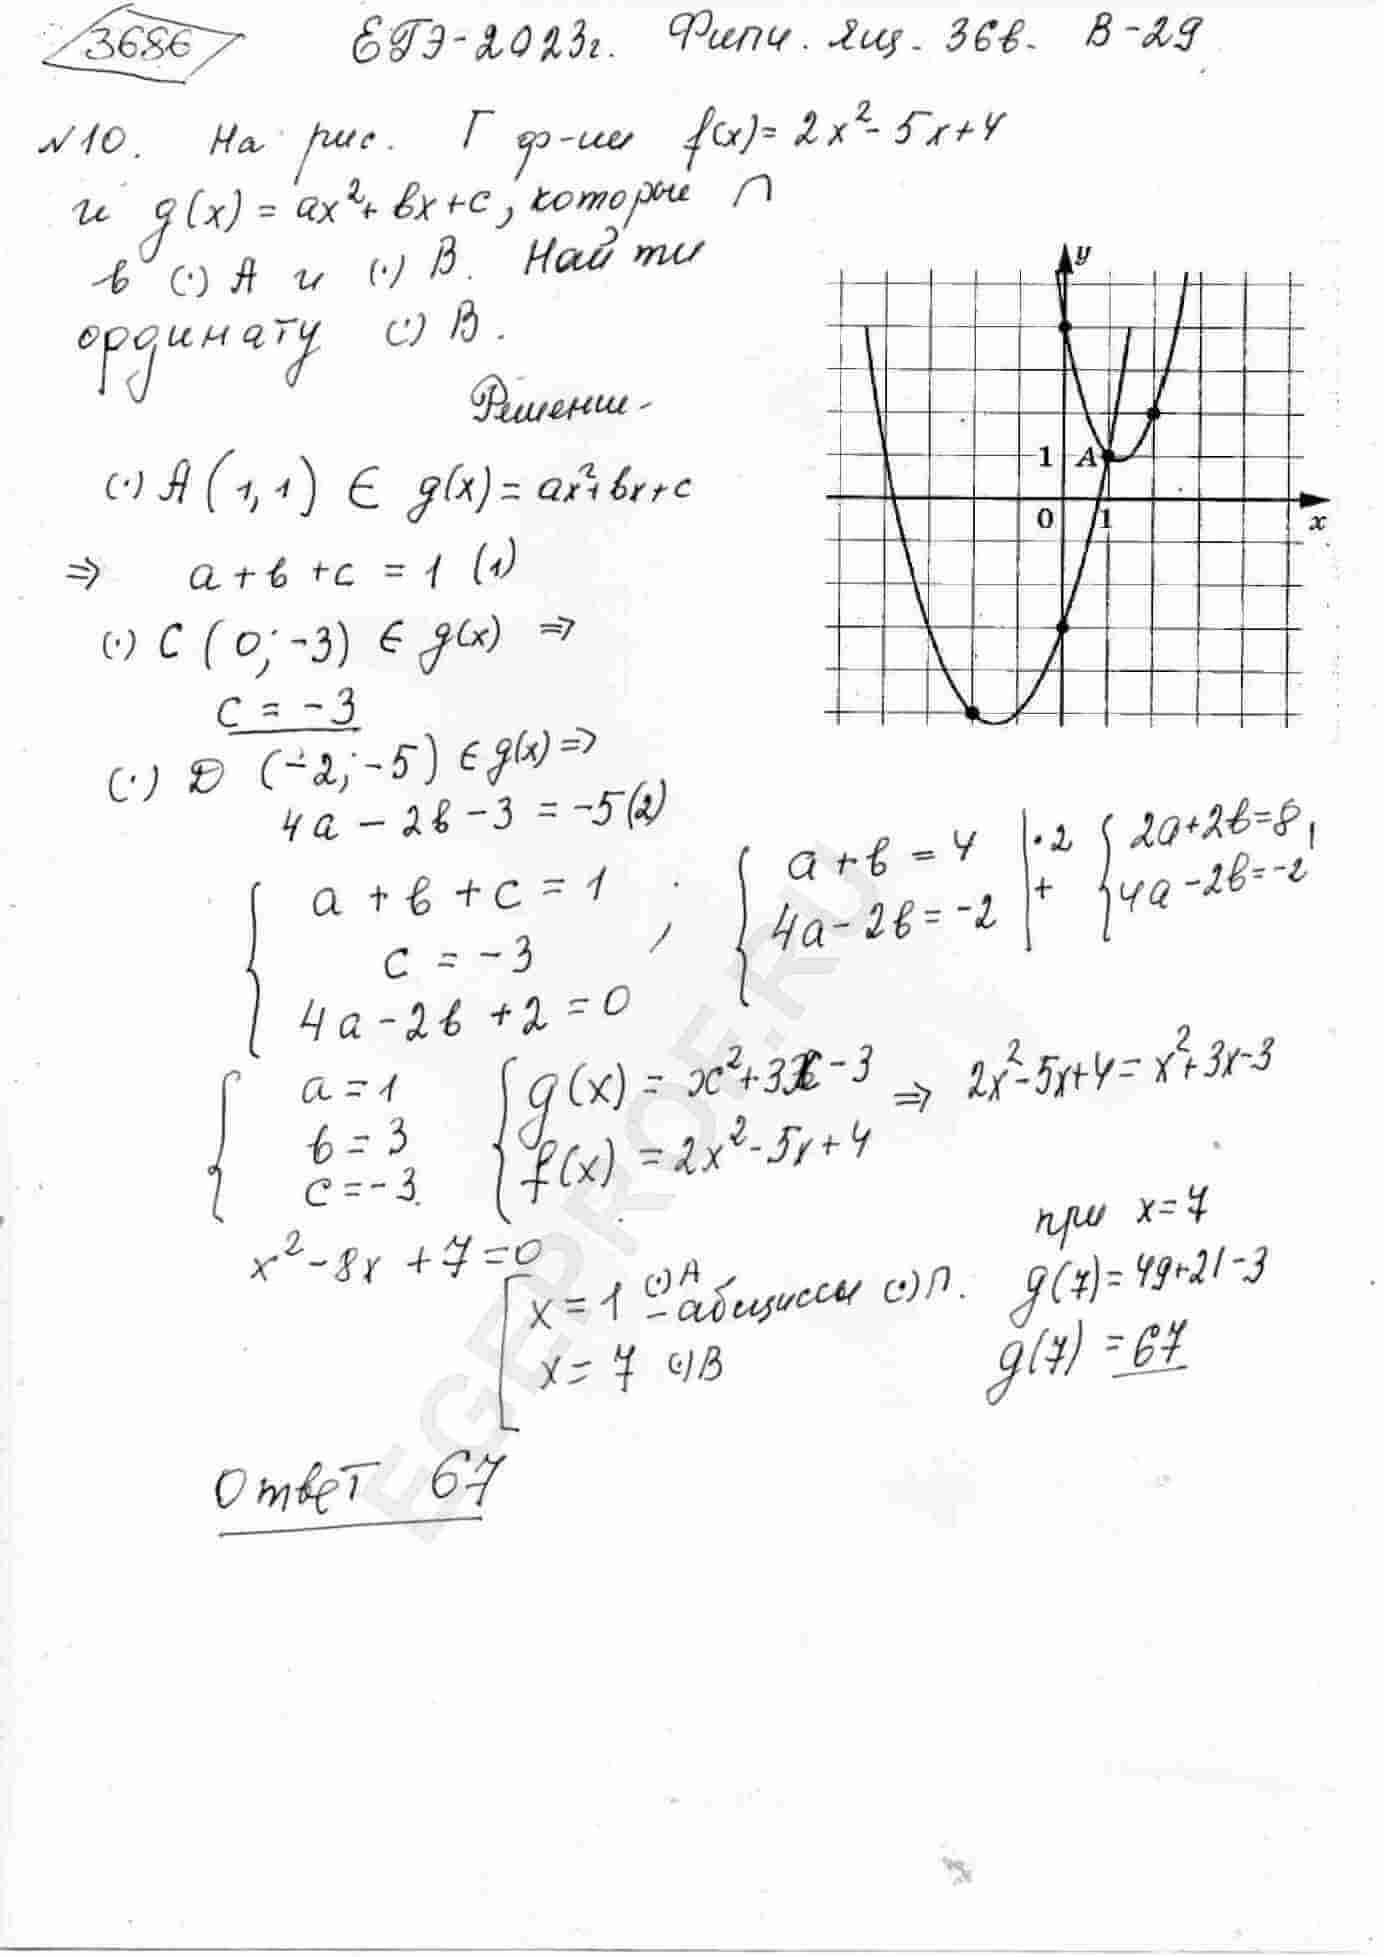 3686
ЕГЭ-2023г. Фипи. Ящ. 36в. В-29
№10. На рис. Г ф-ии f(x)=2x²-5x+4
и g(x)=ax²+bx+c, которые ∩
в (·) A и (·) B. Найти
ординату (·) B.
Решение-
(·) A (1,1) ∈ g(x)=ax²+bx+c
⇒ a+b+c=1 (1)
(·) C (0;-3) ∈ g(x) ⇒
c=-3
(·) D (-2;-5) ∈ g(x) ⇒
4a-2b-3=-5(2)
{ a+b+c=1
c=-3
4a-2b+2=0 ;
{ a+b=4 |·2
4a-2b=-2 |+
{ 2a+2b=8,
4a-2b=-2
{ a=1
b=3
c=-3.
{ g(x)=x²+3x-3
f(x)=2x²-5x+4
⇒ 2x²-5x+4=x²+3x-3
x²-8x+7=0
[ x=1 (·)A - абсциссы (·) ∩.
x=7 (·)B
при x=7
g(7)=49+21-3
g(7)=67
Ответ 67
y
1 A
0 1 x
EGEPROF.RU